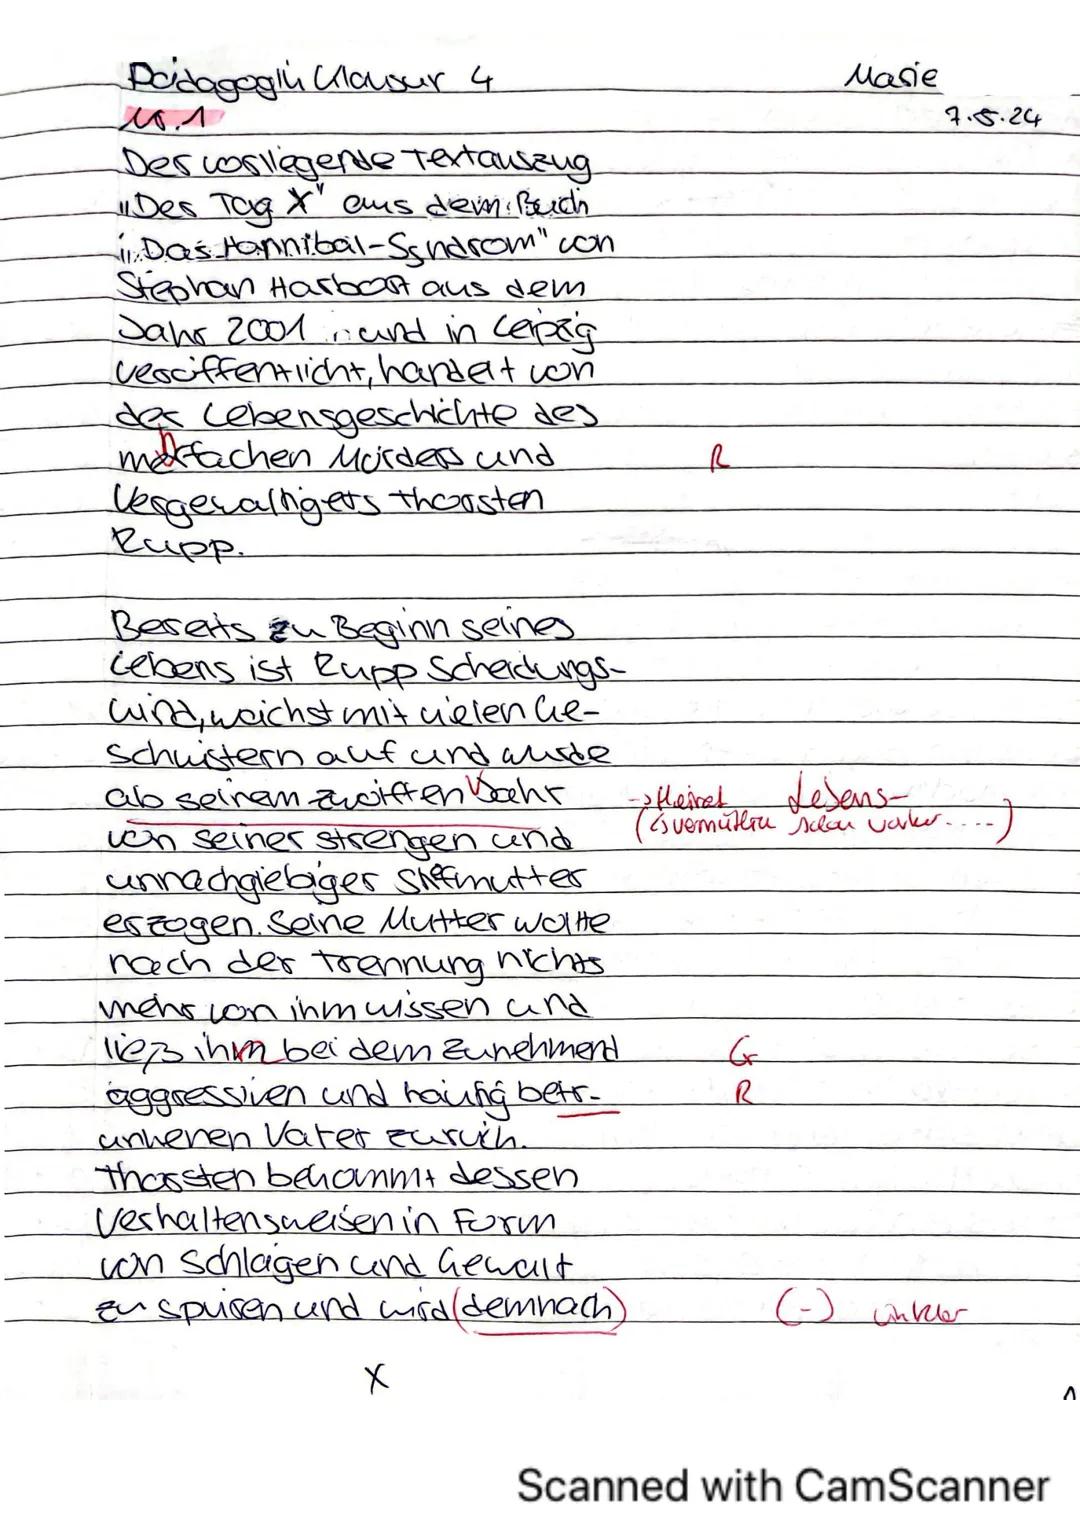 Pädagogik Klausur 4
Marie
7.5.24
Nr. 1
Der vorliegende Textauszug
„Der Tag X" aus dem Buch
„Das Hannibal-Syndrom" von
Stephan Harbort aus dem
Jahr 2001 und in Leipzig
veröffentlicht, handelt von
der Lebensgeschichte des
mehrfachen Mörders und R
Vergewaltigers Thorsten
Rupp.
Bereits zu Beginn seines
Lebens ist Rupp Scheidungs-
kind, wächst mit vielen Ge-
schwistern auf und wurde
ab seinem zwölften Jahr Lebens-
von seiner strengen und
unnachgiebiger Stiefmutter
erzogen. Seine Mutter wollte
nach der Trennung nichts
mehr von ihm wissen und
ließ ihm bei dem zunehmend Gr
aggressiven und häufig betr- R
unkenen Vater zurück.
Thorsten bekommt dessen
Verhaltensweisen in Form
von Schlägen und Gewalt
zu spüren und wird (demnach) (-) unklar
X
1
Scanned with CamScanner